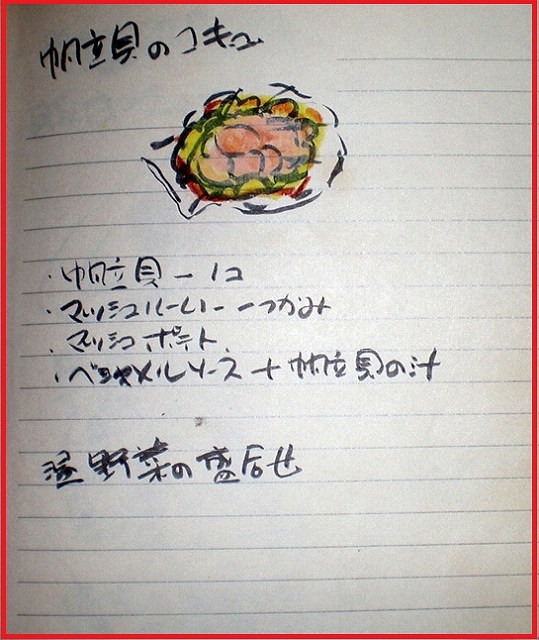 帆立貝のコキユ
・帆立貝 一コ
・マッシュルーム 一つかみ
・マッシュポテト
・ベシャメルソース+帆立貝の汁
温野菜の盛合せ